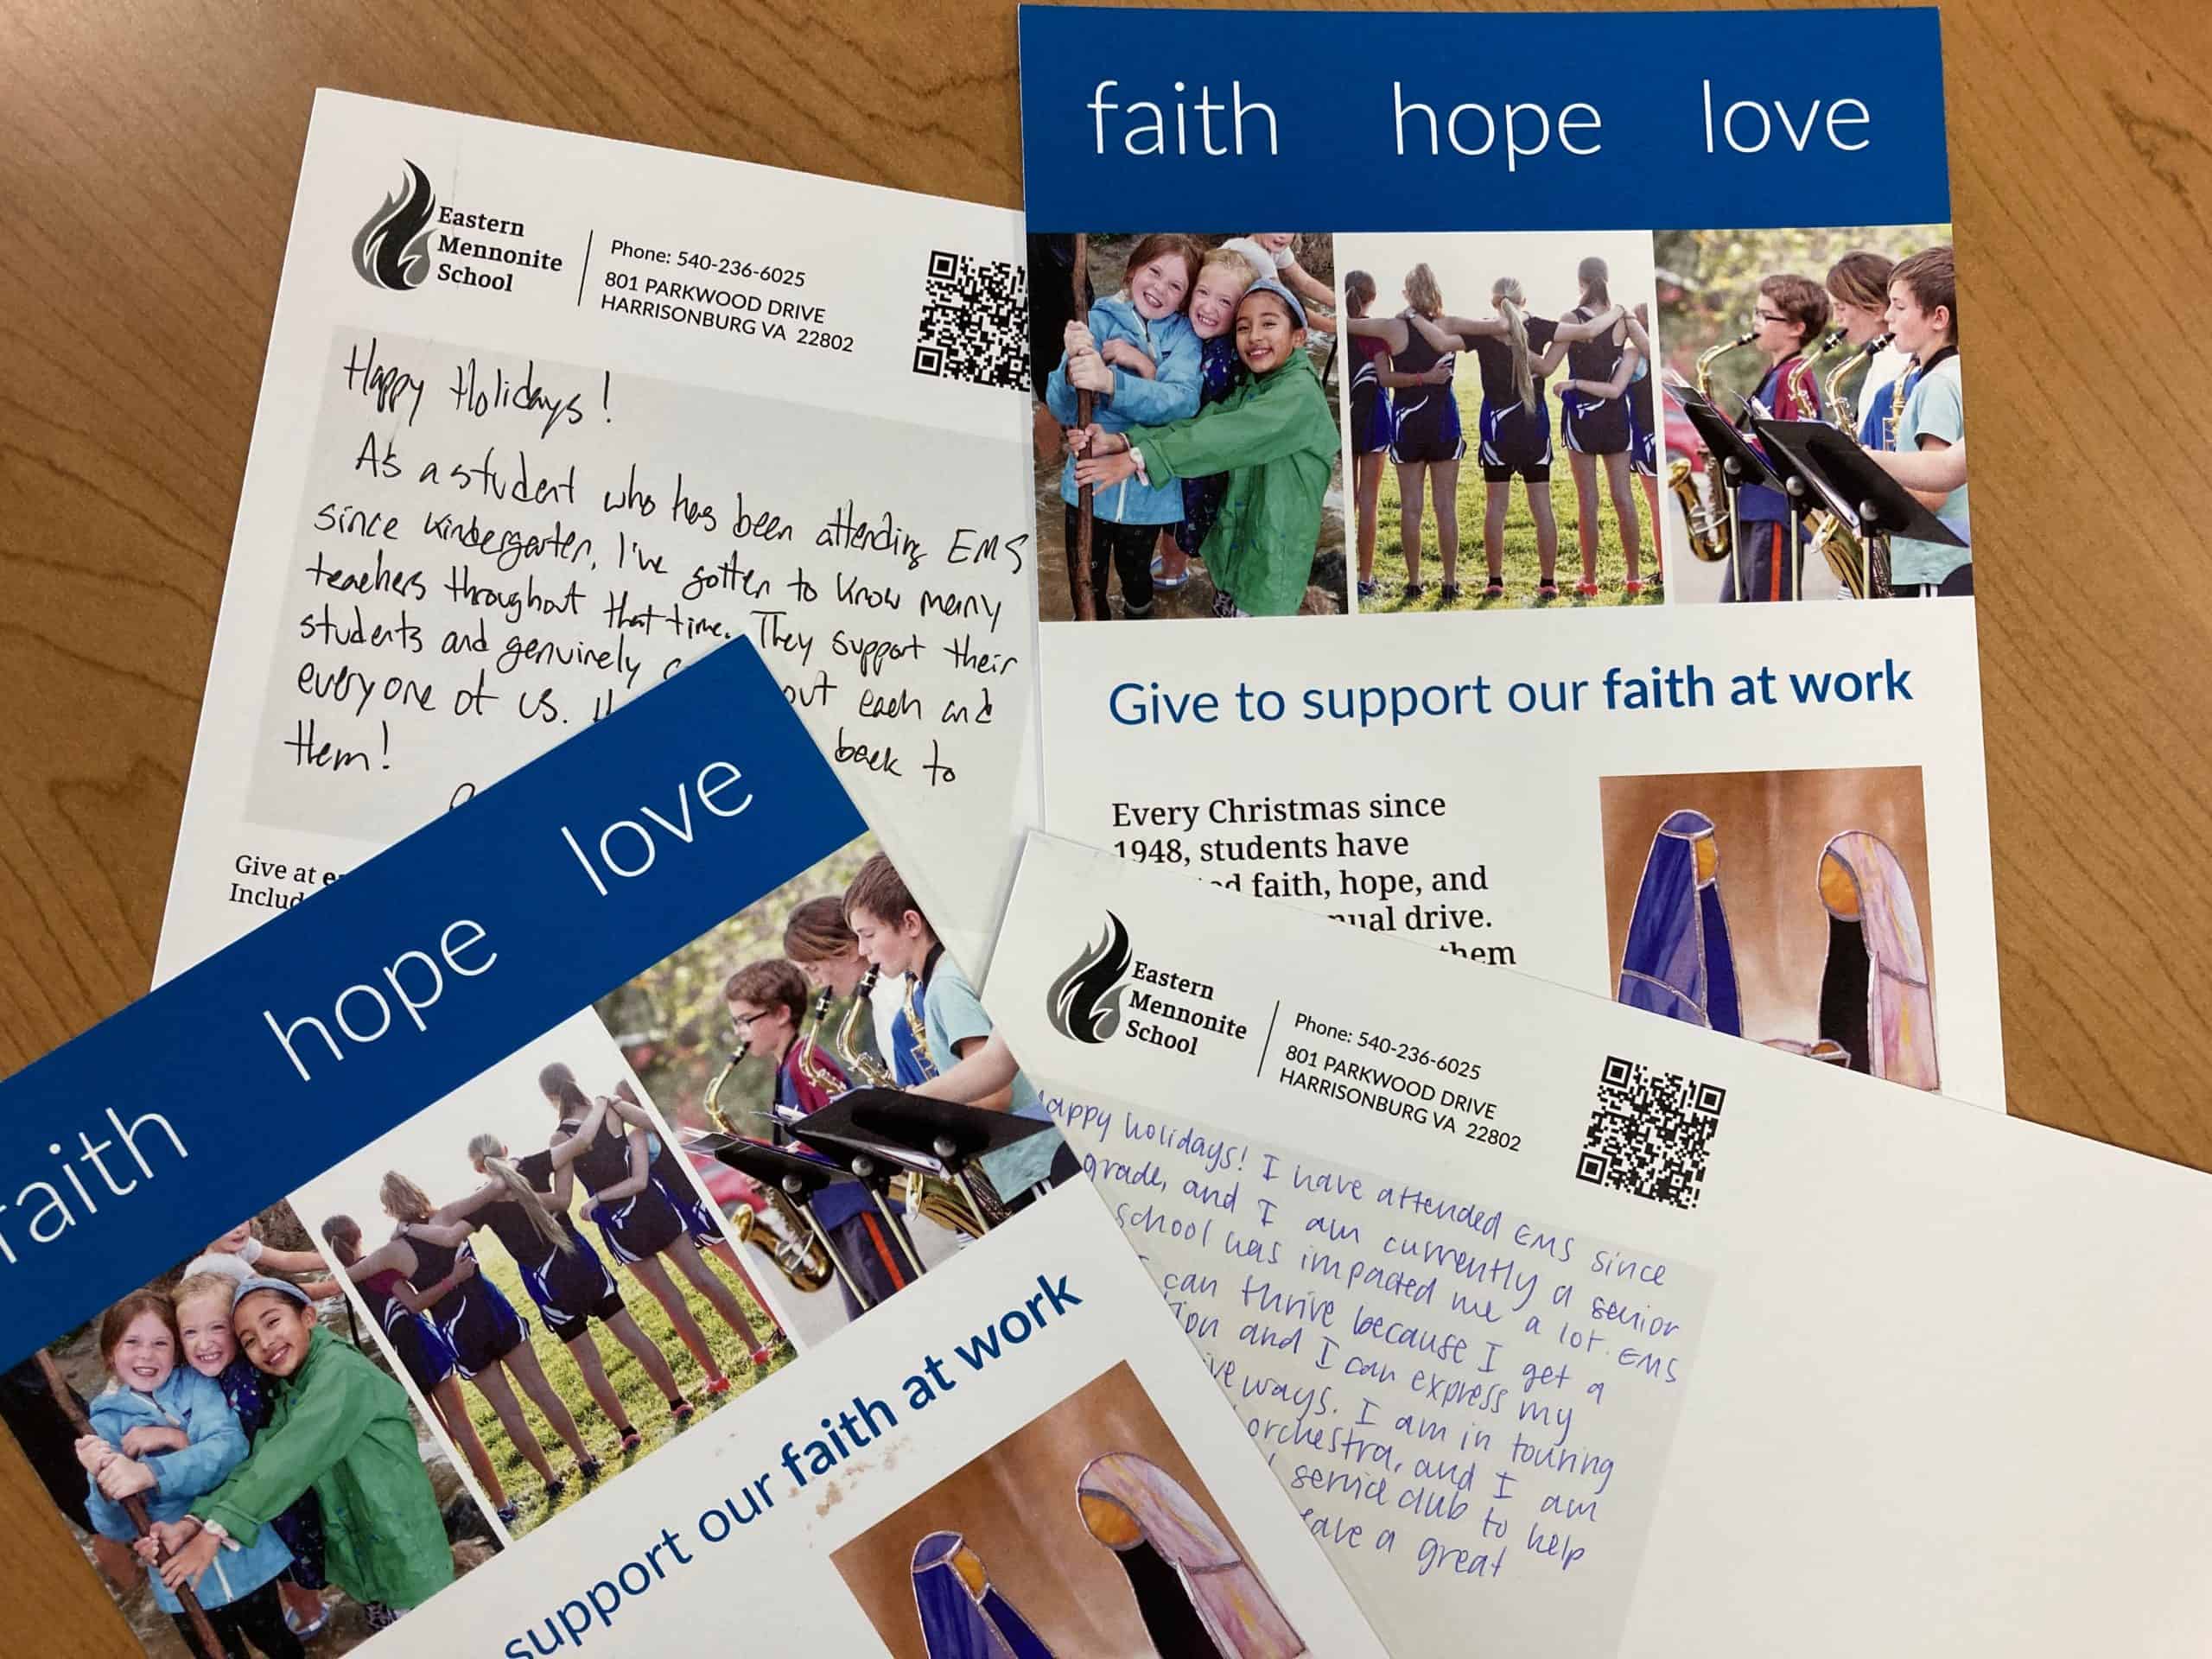 Eastern
Mennonite
School
Phone: 540-236-6025
801 PARKWOOD DRIVE
HARRISONBURG VA 22802
Happy Holidays!
As a student who has been attending EMS
since kindergarten, I've gotten to know many
teachers throughout that time. They support their
students and genuinely out each and
everyone of us. back to
them!
Give at
faith hope love
Give to support our faith at work
Every Christmas since
1948, students have
faith, hope, and
drive.
faith hope love
support our faith at work
Eastern
Mennonite
School
Phone: 540-236-6025
801 PARKWOOD DRIVE
HARRISONBURG VA 22802
happy holidays! I have attended EMS since
grade, and I am currently a senior
school has impacted me a lot. EMS
can thrive because I get a
and I can express my
ways. I am in touring
orchestra, and I am
service club to help
a great